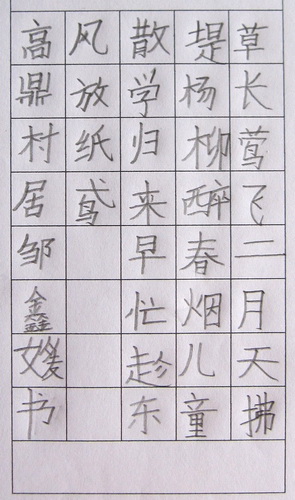 草长莺飞二月天拂
堤杨柳醉春烟儿童
散学归来早忙趁东
风放纸鸢
高鼎村居邹鑫书